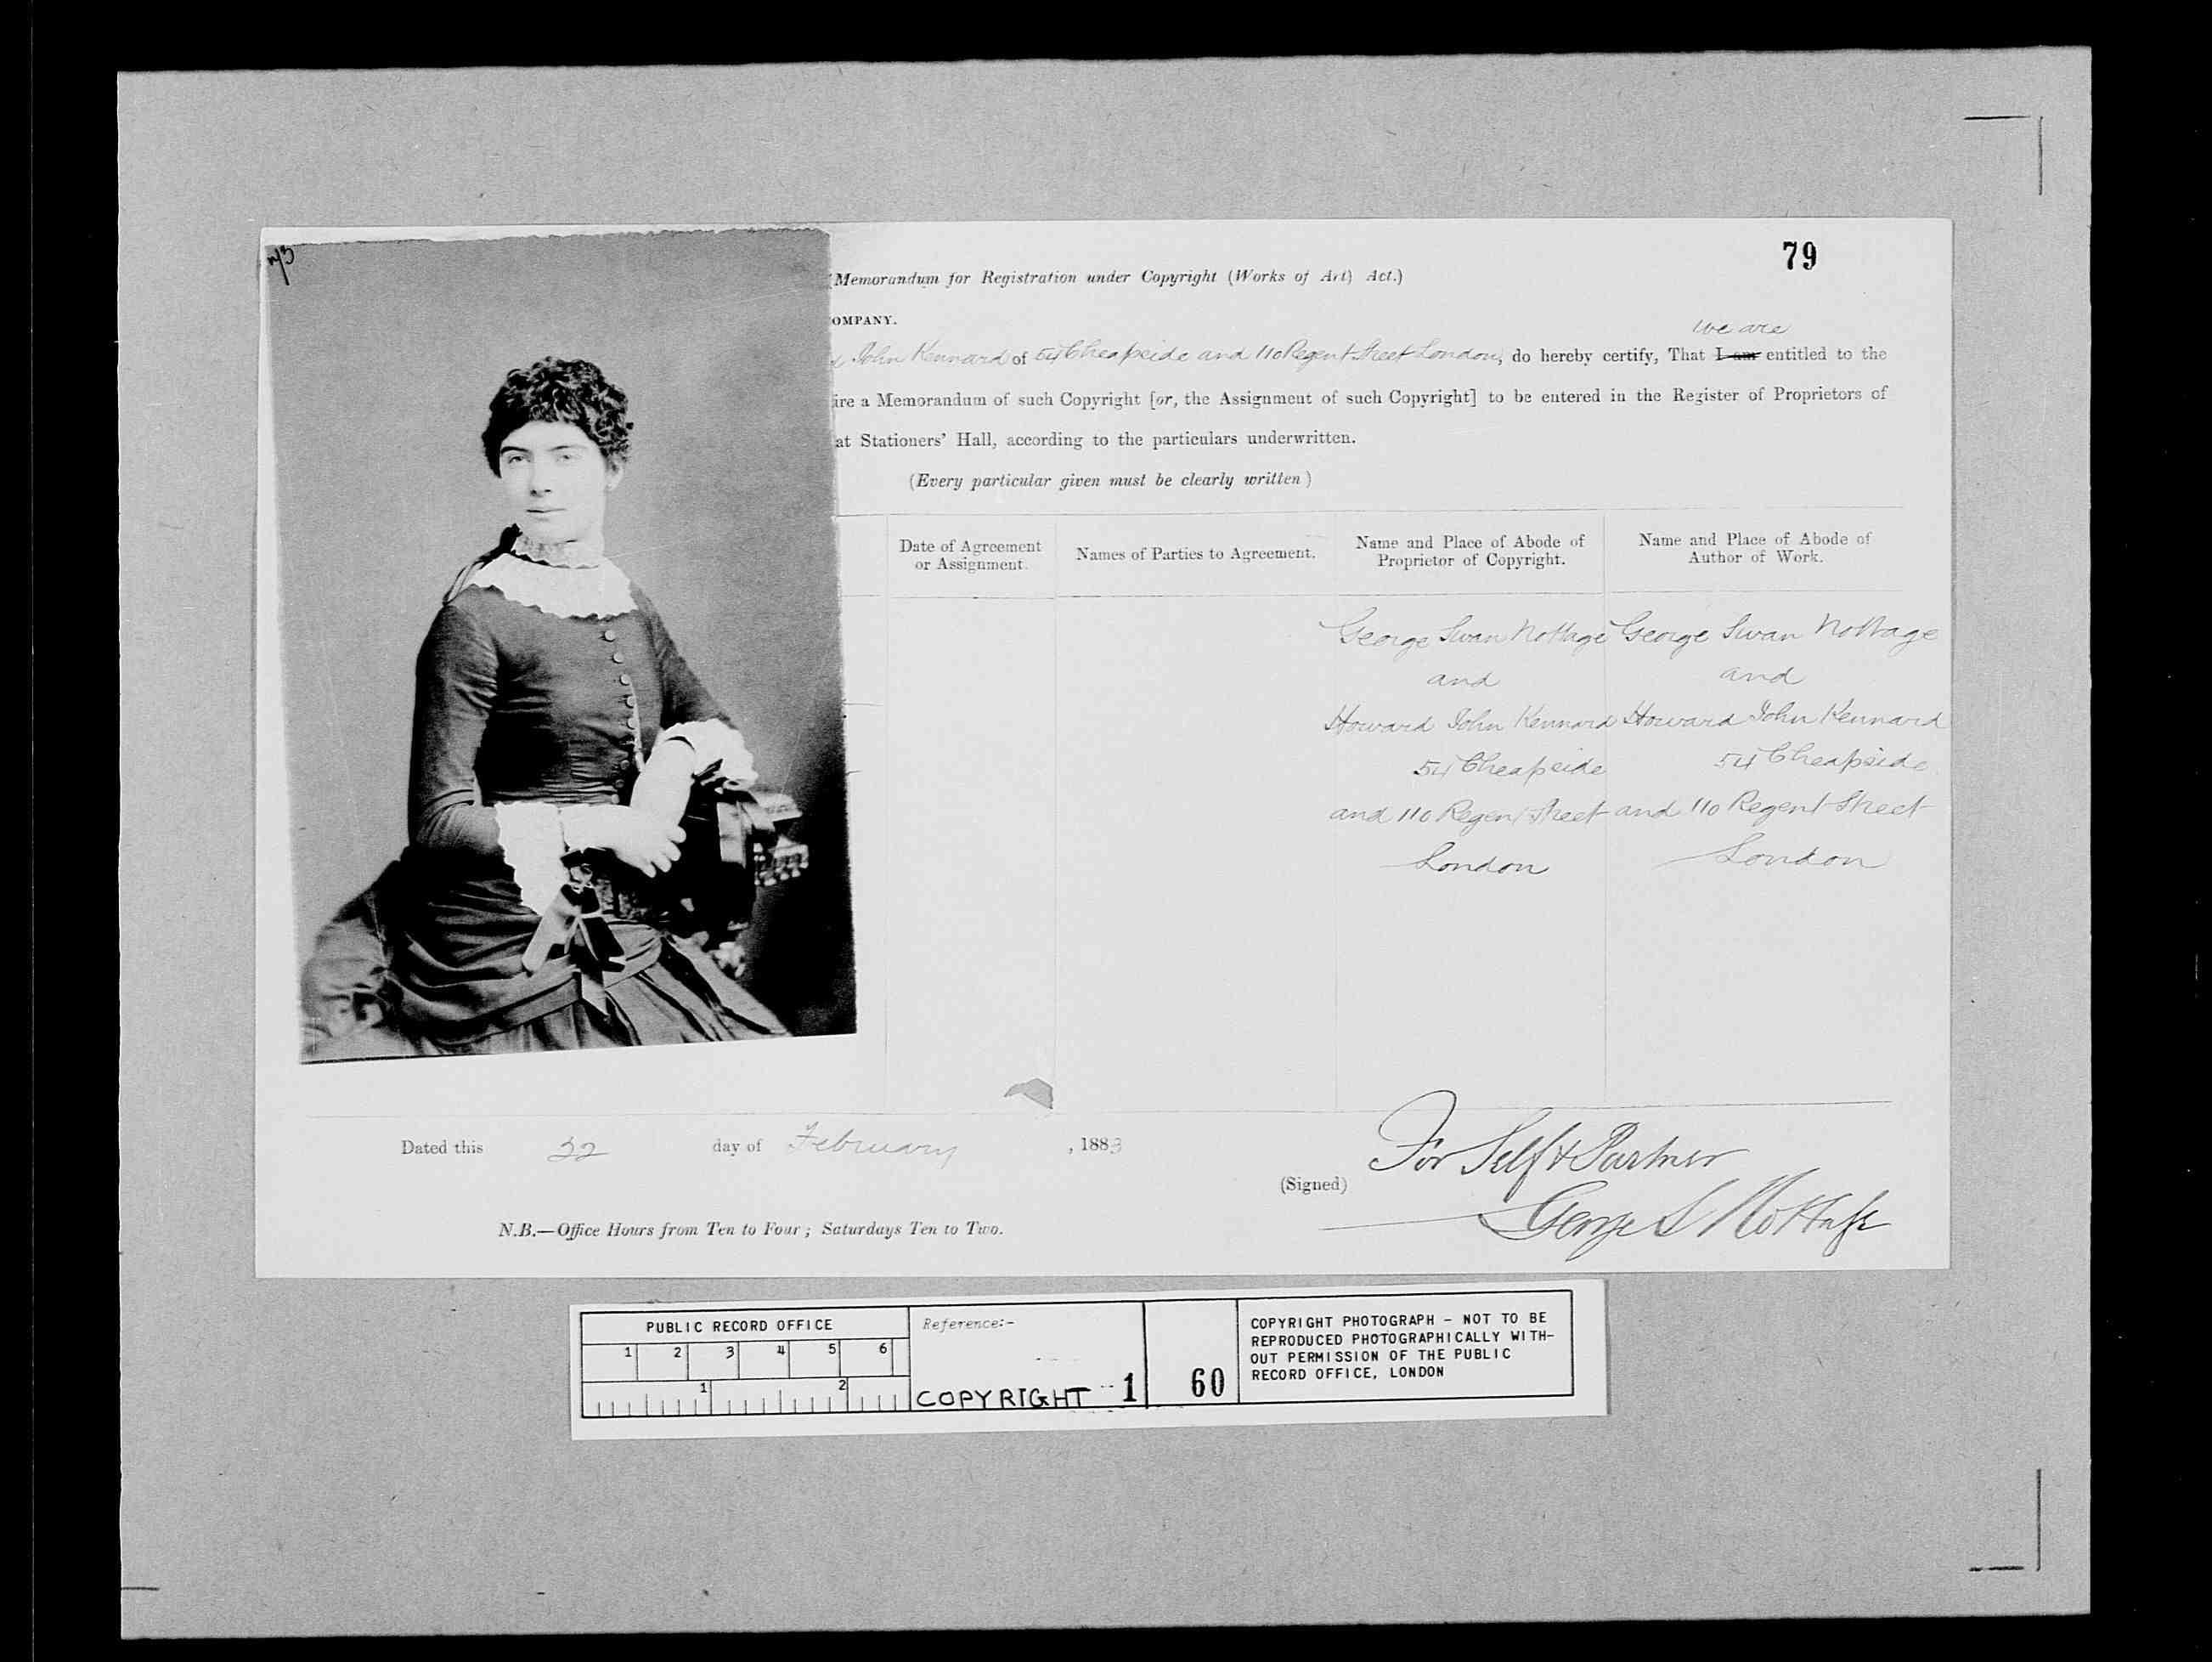 79
(Memorandum for Registration under Copyright (Works of Art) Act.)
OMPANY.
we are
& John Kennard of 54 Cheapside and 110 Regent Street London, do hereby certify, That I am entitled to the
ire a Memorandum of such Copyright [or, the Assignment of such Copyright] to be entered in the Register of Proprietors of
at Stationers' Hall, according to the particulars underwritten.
(Every particular given must be clearly written)
Date of Agreement
or Assignment.
Names of Parties to Agreement.
Name and Place of Abode of
Proprietor of Copyright.
Name and Place of Abode of
Author of Work.
George Swan Nottage
and
Howard John Kennard
54 Cheapside
and 110 Regent Street
London
George Swan Nottage
and
Howard John Kennard
54 Cheapside
and 110 Regent Street
London
Dated this 22 day of February, 1883
(Signed)
For Self & Partner
George S Nottage
N.B.—Office Hours from Ten to Four; Saturdays Ten to Two.
PUBLIC RECORD OFFICE
1 2 3 4 5 6
1 2
Reference:-
COPYRIGHT 1
60
COPYRIGHT PHOTOGRAPH - NOT TO BE
REPRODUCED PHOTOGRAPHICALLY WITH-
OUT PERMISSION OF THE PUBLIC
RECORD OFFICE, LONDON